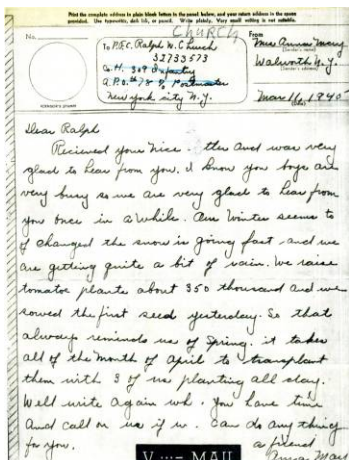 Print the complete address in plain block letters in the panel below, and your return address in the space
provided. Use typewriter, dark ink, or pencil. Write plainly. Very small writing is not suitable.
CHURCH
No.
To P.F.C. Ralph W. Church
32733573
Co. H. 309 Infantry
A.P.O. # 78 % Postmaster
New York City N.Y.
From
Mrs Anna May
(Sender's name)
Walworth N.Y.
Mar 11, 1945
(Date)
Dear Ralph
Recieved your nice and was very
glad to hear from you. I know you boys are
very busy so we are very glad to hear from
you once in a while. Our Winter seems to
of changed the snow is going fast and we
are getting quite a bit of rain. We raise
tomatoe plants about 350 thousand and we
sowed the first seed yesterday. So that
always reminds us of Spring. it takes
all of the month of April to transplant
them with 3 of us planting all day.
Well write again you have time
And call on us if Can do any thing
for you. a friend
Anna May
V MAIL